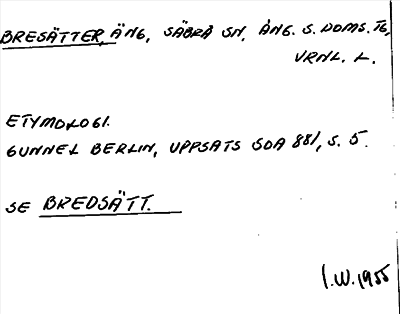 BRESÄTTER, ÄNG, SÄBRÅ SN, ÅNG. S. DOMS. TG,
VRNL. L.
ETYMOLOGI.
GUNNEL BERLIN, UPPSATS SOA 881, S. 5.
SE BREDSÄTT.
I.W. 1955